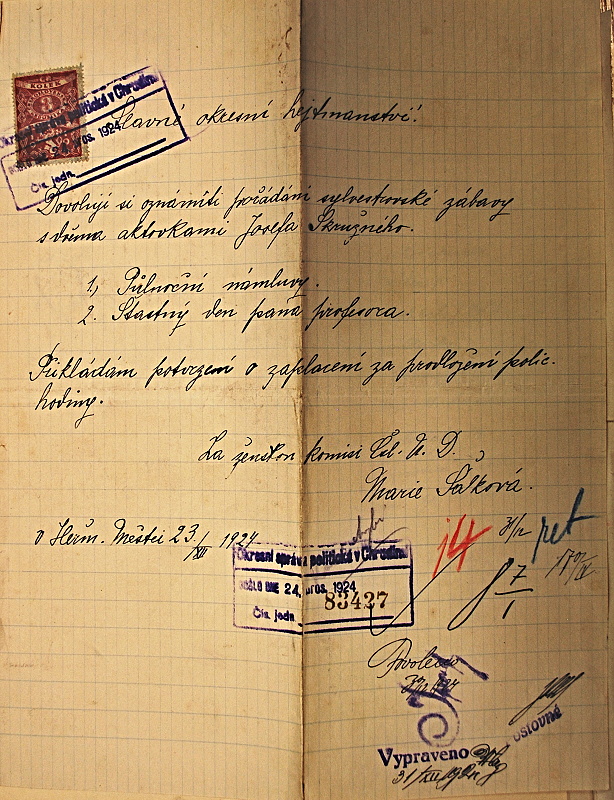 KOLEK
3
Okresní správa politická v Chrudimi
došlo dne 24. pros. 1924
Čís. jedn.
Slavné okresní hejtmanství!
Dovoluji si oznámiti pořádání sylvestrovské zábavy
s dvěma aktovkami Josefa Skružného.
1, Půlnoční námluvy.
2. Šťastný den pana profesora.
Přikládám potvrzení o zaplacení za prodloužení polic.
hodiny.
Za ženskou komisi Čsl. N. D.
Marie Šálková.
V Heřm. Městci 23./XII 1924
Okresní správa politická v Chrudimi
došlo dne 24. pros. 1924
Čís. jedn. 83427
14
31/12
ret
7
1
Povoleno
Vypraveno
31/XII 1924
ostovné